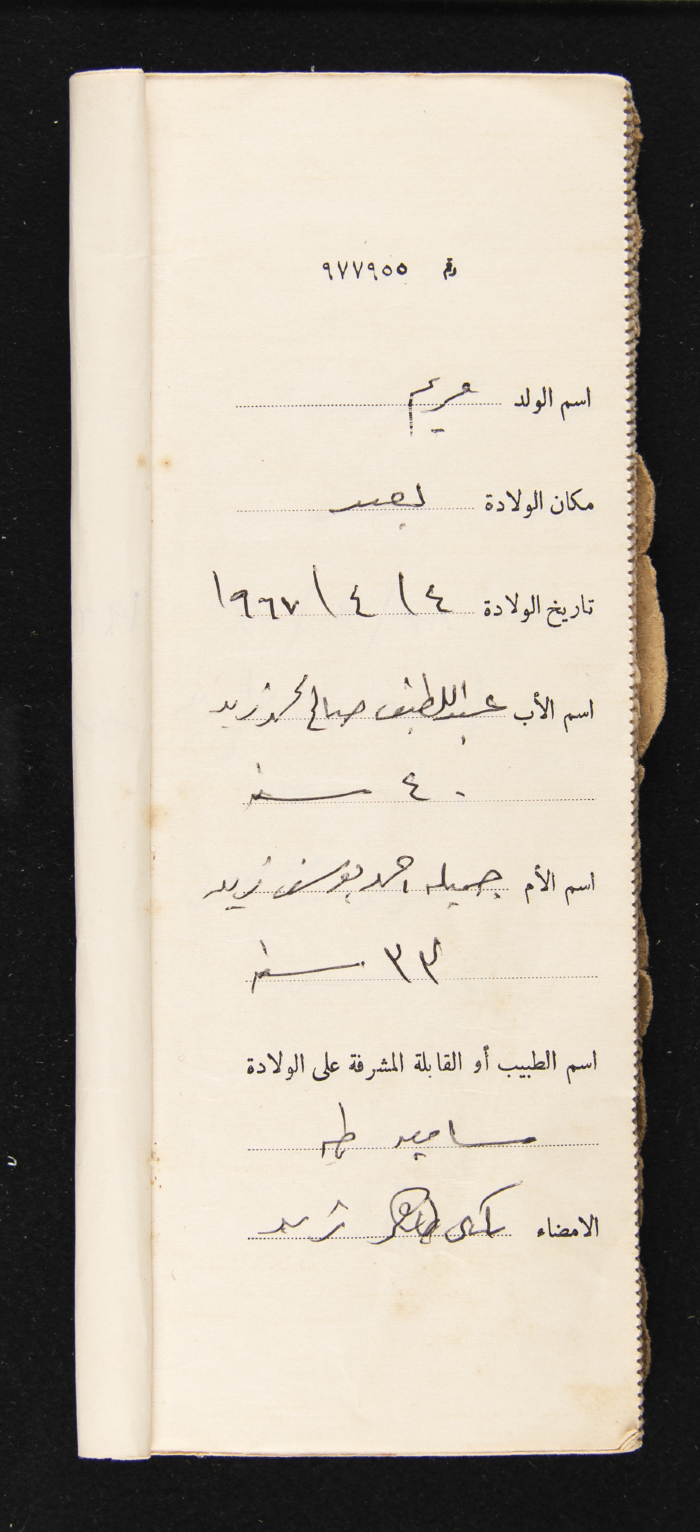 رقم ٩٧٧٩٥٥
اسم الولد مريم
مكان الولادة
تاريخ الولادة ٤ / ٤ / ١٩٦٧
اسم الأب عبداللطيف صالح محمد زيد
٤٠ سنه
اسم الأم جميله احمد يوسف زيد
٣٣ سنه
اسم الطبيب أو القابلة المشرفة على الولادة
طه
الامضاء زيد